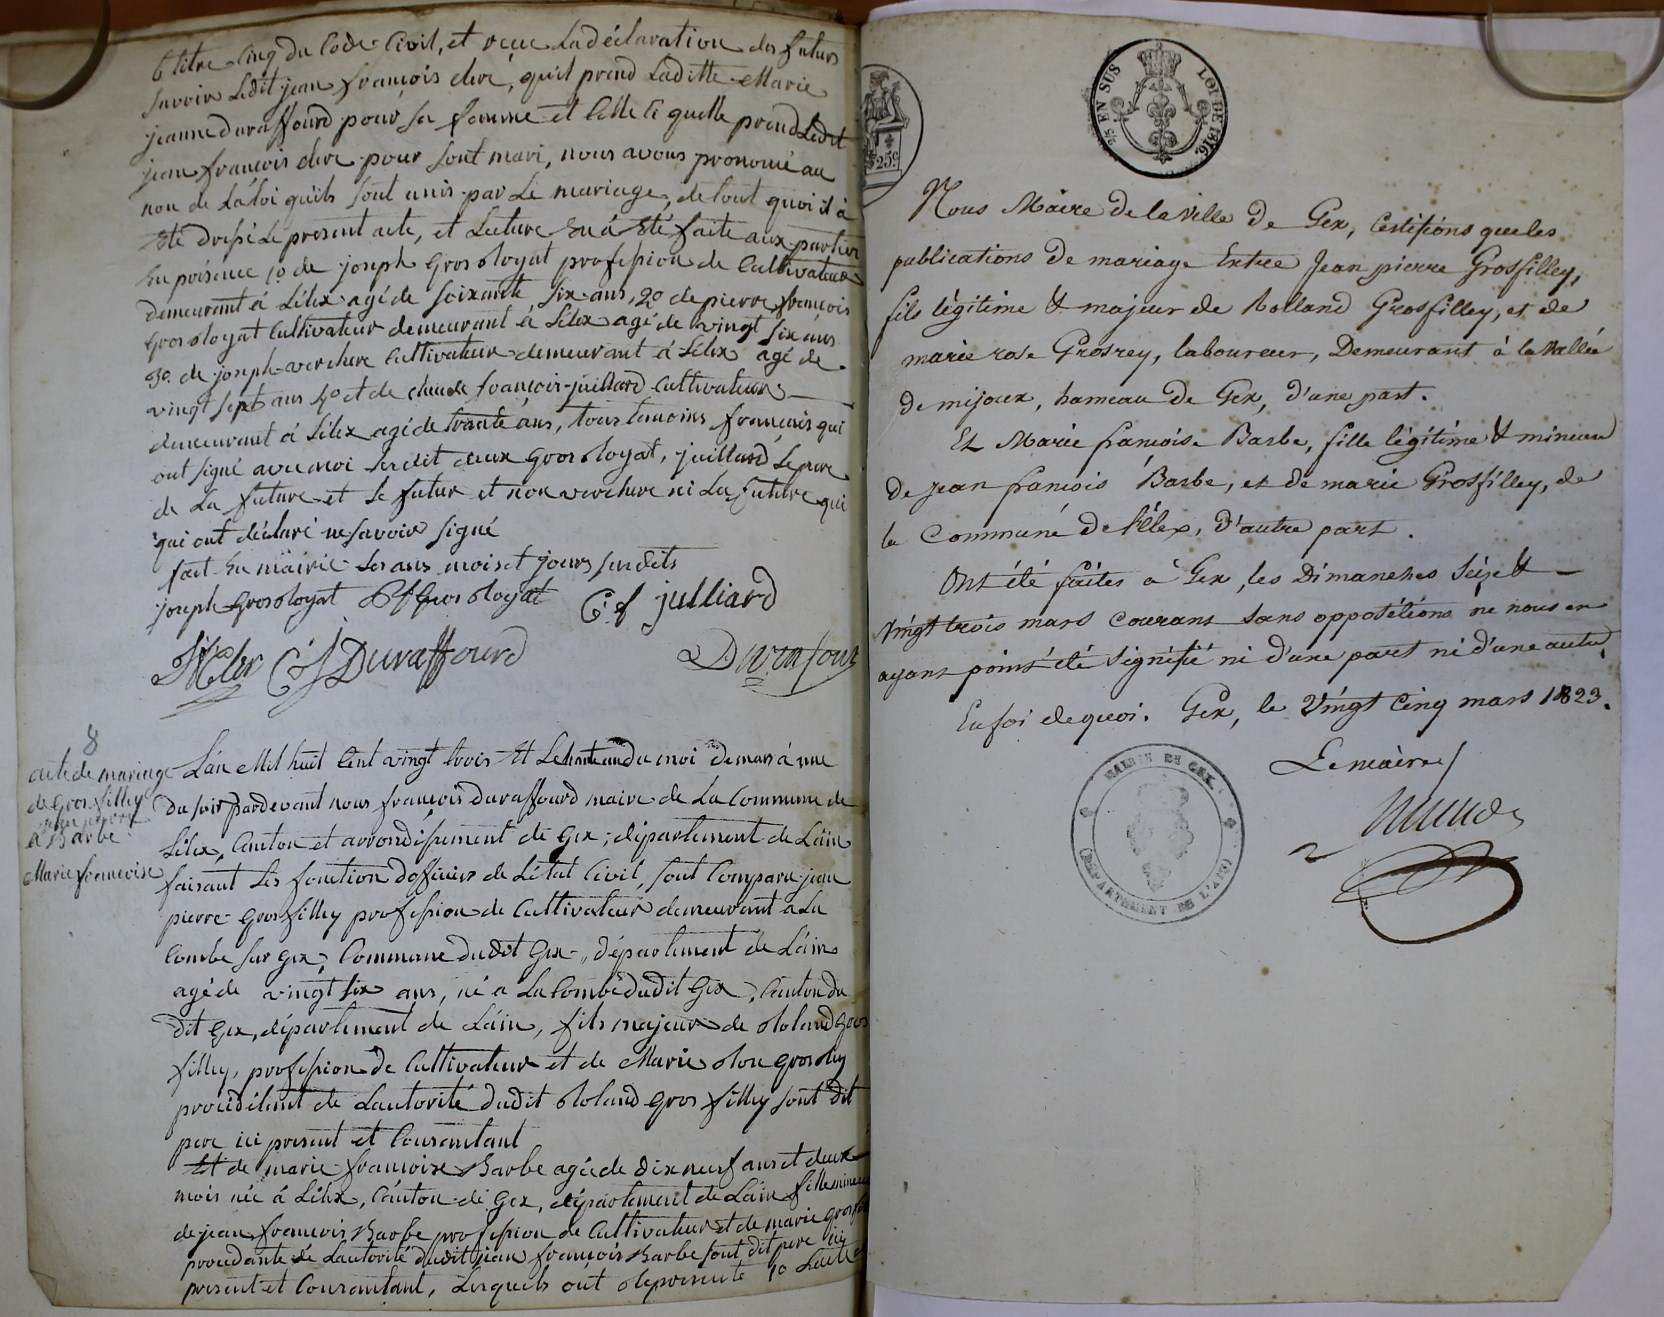 6 titre Cinq du Code Civil, et reçue La déclaration des futurs
savoir Ledit jean françois clerc, qu'il prend Laditte Marie
jeanne duraffourd pour sa femme et Celle Ci quelle prend Ledit
jean françois clerc pour sont mari, nous avons prononcé au
non de La Loi qu'ils sont unis par Le mariage, de tout quoi il à
Eté dressé Le present acte, et Lecture En á Eté faite aux parties
En présence 1o de joseph Grosroyat profession de Cultivateur
demeurant á Lélex agé de soixante six ans, 2o de pierre françois
Grosroyat Cultivateur demeurant á Lélex agé de vingt six ans
3o de joseph verchere Cultivateur demeurant á Lélex agé de
vingt sept ans 4o et de claude françois juillard Cultivateur
demeurant á Lélex agé de trante ans, tous temoins français qui
ont signé avec moi Lesdit deux Grosroyat, juillard, Le pere
de La future et le futur et non verchere ni La future qui
qui ont déclaré ne savoir signé
fait En mairie Les ans mois et jours susdits
joseph Grosroyat Pf Gros Royat C. f julliard
C J Duraffourd Durafour
8
acte de mariage
de Gros filley
jean pierre
á Barbe
Marie françoise
L'an Mil huit Cent vingt trois Et Le trante un du moi de mars à une
du soir pardevant nous françois duraffourd maire de La Commune de
Lélex, Canton et arrondissement de Gex, département de L'áin
faisant Les fonction d'officier de L'état Civil, sont Comparu jean
pierre Grosfilley profession de Cultivateur demeurant à La
Combe sur Gex, Commune dudit Gex, département de L'áin
agé de vingt six ans, né a La Combe dudit Gex, Canton du
dit Gex, département de L'áin, fils majeur de Roland Gros
filley, profession de Cultivateur et de Marie Rose Grosrey
procédant de L'autorité dudit Roland Gros filley sont dit
pere ici present et Consentant
Et de marie françoise Barbe agée de dix neuf ans et deux
mois née á Lélex, Canton de Gex, département de L'áin fille mineure
de jean françois Barbe profession de Cultivateur et de marie Grosfil
procédante de L'autorité dudit jean françois Barbe sont dit pere ici
present et Consentant, Lesquels ont représenté 1o L'acte
2/10 EN SUS LOI DE 1816.
25c
Nous Maire de la Ville de Gex, Certifions que les
publications de mariage Entre Jean pierre Grosfilley,
fils légitime & majeur de Rolland Grosfilley, et de
marie rose Grosrey, laboureur, Demeurant à la Vallée
de mijoux, hameau de Gex, d'une part.
Et Marie françoise Barbe, fille légitime & mineure
de jean françois Barbe, et de marie Grosfilley, de
la Commune de Lélex, d'autre part.
Ont été faites à Gex, les Dimanches Seize &
Vingt trois mars courant sans oppositions ne nous en
ayant point été signifié ni d'une part ni d'une autre,
En foi de quoi. Gex, le Vingt Cinq mars 1823.
Le maire
MAIRIE DE GEX
(DÉPARTEMENT DE L'AIN)